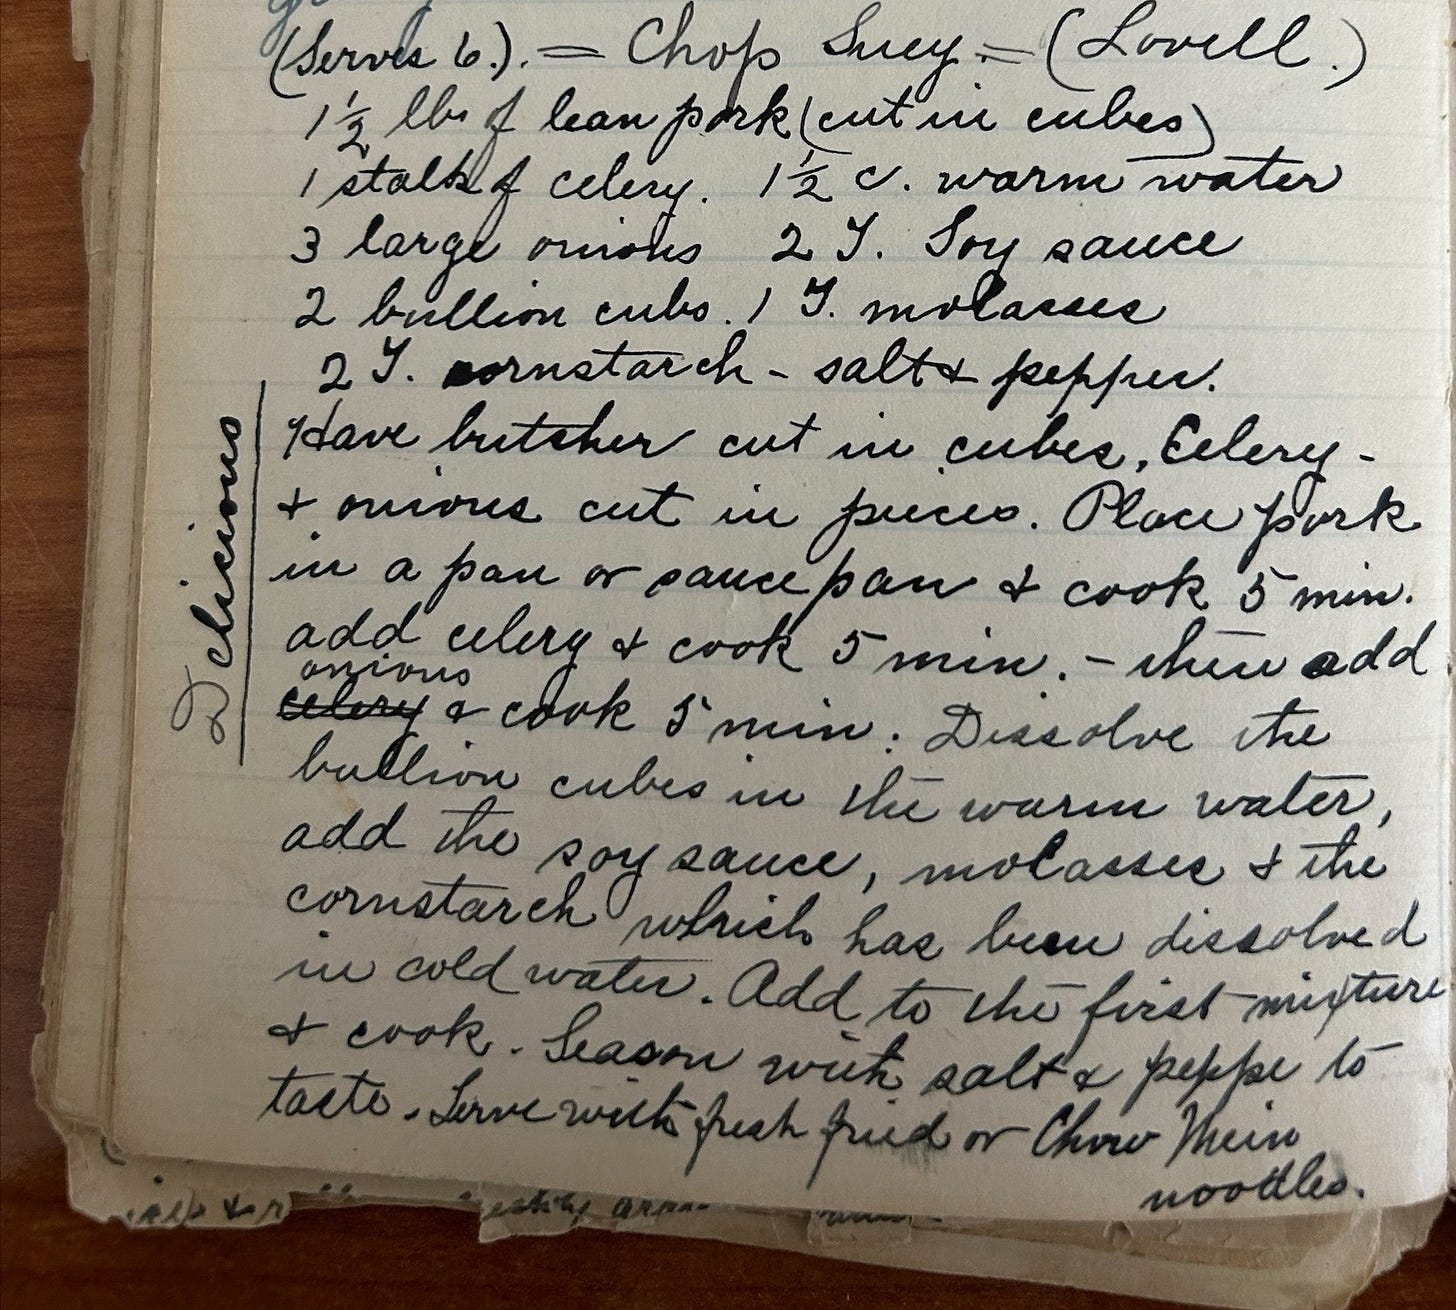 (Serves 6.). = Chop Suey. = (Lovell.)
1½ lbs of lean pork (cut in cubes)
1 stalk of celery. 1½ c. warm water
3 large onions 2 T. Soy sauce
2 bullion cubs. 1 T. molasses
2 T. cornstarch - salt & pepper.
Have butcher cut in cubes, Celery -
& onions cut in pieces. Place pork
in a pan or sauce pan & cook 5 min.
add celery & cook 5 min. - then add
onions
celery & cook 5 min. Dissolve the
bullion cubes in the warm water,
add the soy sauce, molasses & the
cornstarch which has been dissolved
in cold water. Add to the first mixture
& cook. Season with salt & peppe to
taste. Serve with fresh fried or Chow Mein
noodles.
Delicious